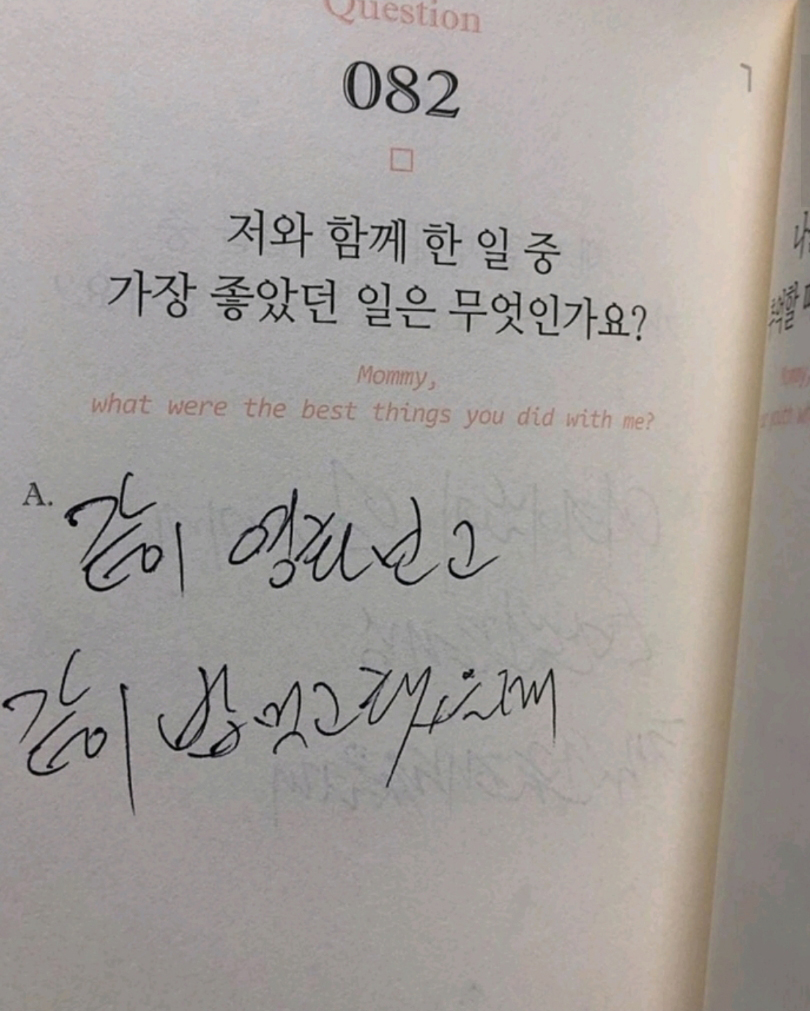 Question
082
저와 함께 한 일 중
가장 좋았던 일은 무엇인가요?
Mommy,
what were the best things you did with me?
A. 같이 영화 보고
같이 밥 먹고 했을때